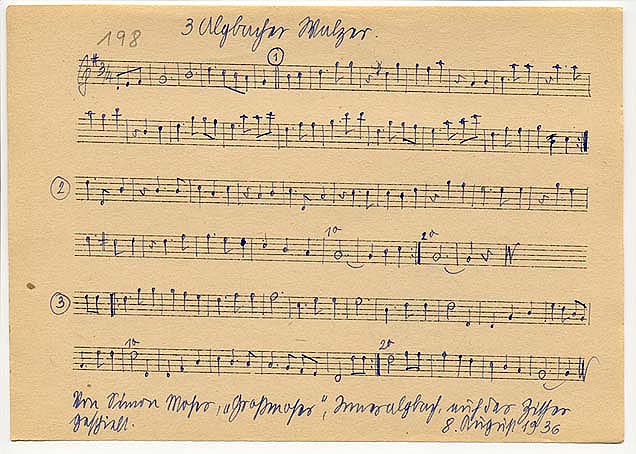 198
3 Algbacher Walzer.
1
2
1a 2a
3
1a 2a
Von Simon Moser, „Großmoser", Inneralgbach, auf der Zither
gespielt. 8. August 1936